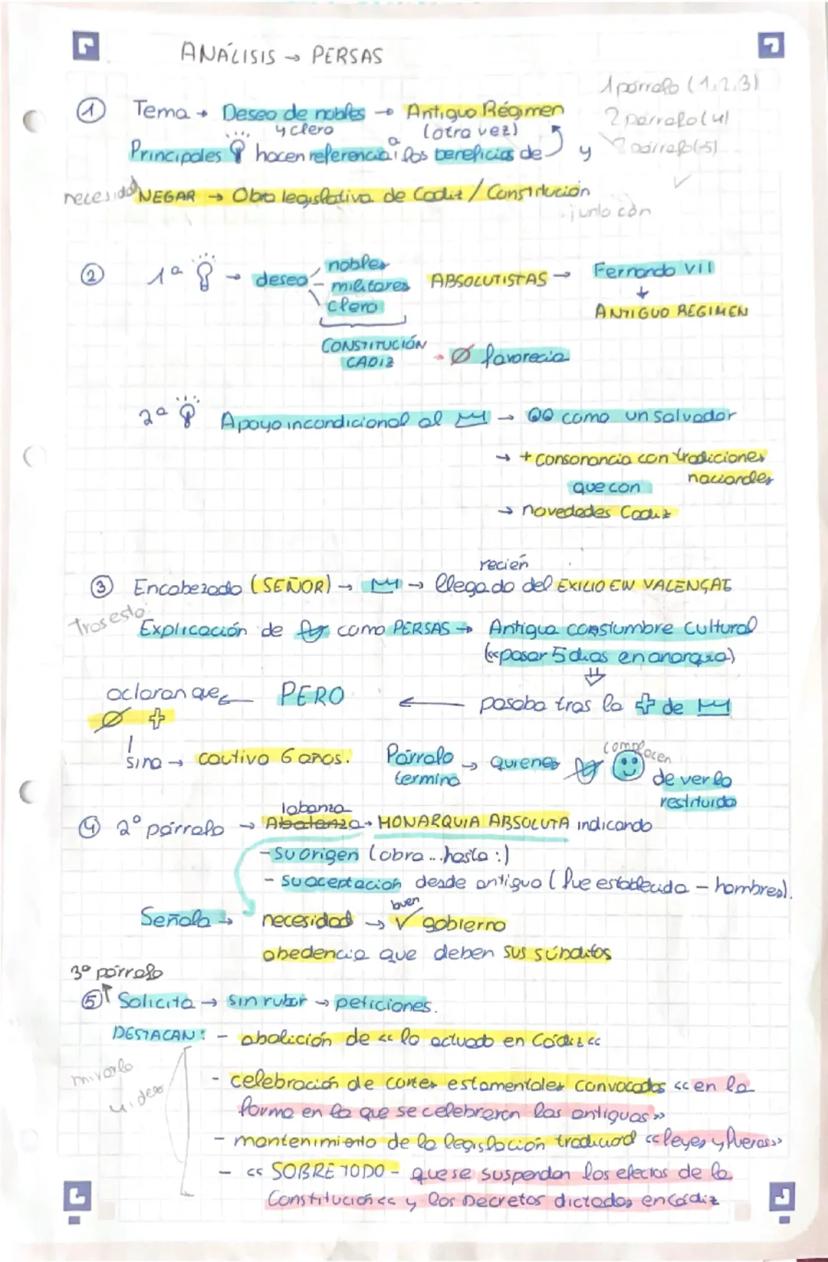 ANÁLISIS → PERSAS
1 párrafo (1,2,3)
2 párrafo (4)
párrafo (5)
① Tema → Deseo de nobles → Antiguo Régimen
y clero (otra vez)
Principales hacen referencia a los beneficios de y
necesidad NEGAR → Obra legislativa de Cadiz / Constitución
junto con
② 1ª → deseo nobles ABSOLUTISTAS → Fernando VII
militares
clero ↓ ANTIGUO REGIMEN
CONSTITUCIÓN CADIZ → Ø favorecia
2ª Apoyo incondicional al → como un salvador
→ + consonancia con tradiciones nacionales
que con
→ novedades Cadiz
③ Encabezado (SEÑOR) → → recien llegado del EXILIO EN VALENÇAT
Tras esto
Explicación de como PERSAS → Antigua constumbre cultural
(«pasar 5 dias en anarquia)
aclaran que ← PERO ← pasaba tras la + de
Ø +
sino → cautivo 6 años. Párrafo termina → quienes complacen de verlo restituido
④ 2º párrafo → labanza Abalanza → MONARQUIA ABSOLUTA indicando
- Su origen (obra...hasta:)
- su aceptacion desde antiguo (fue establecida - hombres).
Señala → necesidad → ✓ buen gobierno
obedencia que deben sus súbditos
3º párrafo
⑤ Solicita → sin rubor → peticiones.
DESTACAN: - abolición de «lo actuado en Cádiz««
mirarlo
video
- celebración de cortes estamentales convocadas «en la
forma en la que se celebraron las antiguas»
- mantenimiento de la legislación tradicional «leyes y fueros»
- «SOBRE TODO - que se suspendan los efectos de la
Constitución« y los Decretos dictados en Cádiz